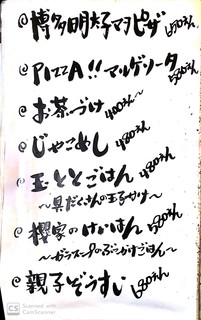 @博多明太子マヨピザ
@PIZZA!!マルゲリータ 580えん
@お茶づけ 400えん〜
@じゃこめし 480えん
@玉ととごはん 480えん
〜具だくさんの玉子かけ〜
@櫻家のけいはん 580えん
〜ガラスープのぶっかけごはん〜
@親子ぞうすい 680えん
CS Scanned with
CamScanner